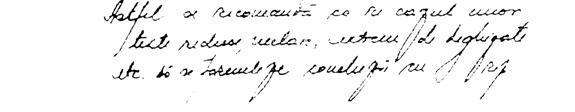 Astfel se recomandă ca în cazul unor
texte reduse, neclare, extrem de
etc. să se formuleze concluzii cu